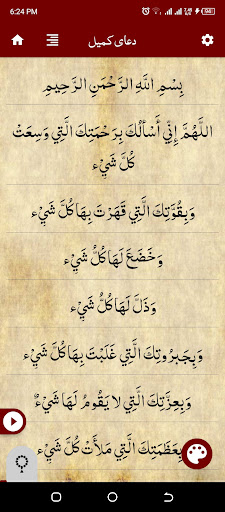 6:24 PM
دعای کمیل
بِسْمِ اللَّهِ الرَّحْمنِ الرَّحِيمِ
اللَّهُمَّ إِنِّي أَسْأَلُكَ بِرَحْمَتِكَ الَّتِي وَسِعَتْ
كُلَّ شَيْء
وَبِقُوَّتِكَ الَّتِي قَهَرْتَ بِهَا كُلَّ شَيْء
وَخَضَعَ لَهَا كُلُّ شَيْء
وَذَلَّ لَهَا كُلُّ شَيْء
وَبِجَبَرُوتِكَ الَّتِي غَلَبْتَ بِهَا كُلَّ شَيْء
وَبِعِزَّتِكَ الَّتِي لا يَقُومُ لَهَا شَيْءٌ
بِعَظَمَتِكَ الَّتِي مَلأَتْ كُلَّ شَيْء